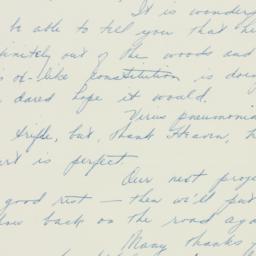 It is wonder
be able to tell you that he
finitely out of the woods and
ox-like constitution is doi
dared hope it would.
Virus pneumonia
trifle, but, thank Heaven, h
art is perfect
Our next proje
good rest — then we'll put
how back on the road aga
Many thanks